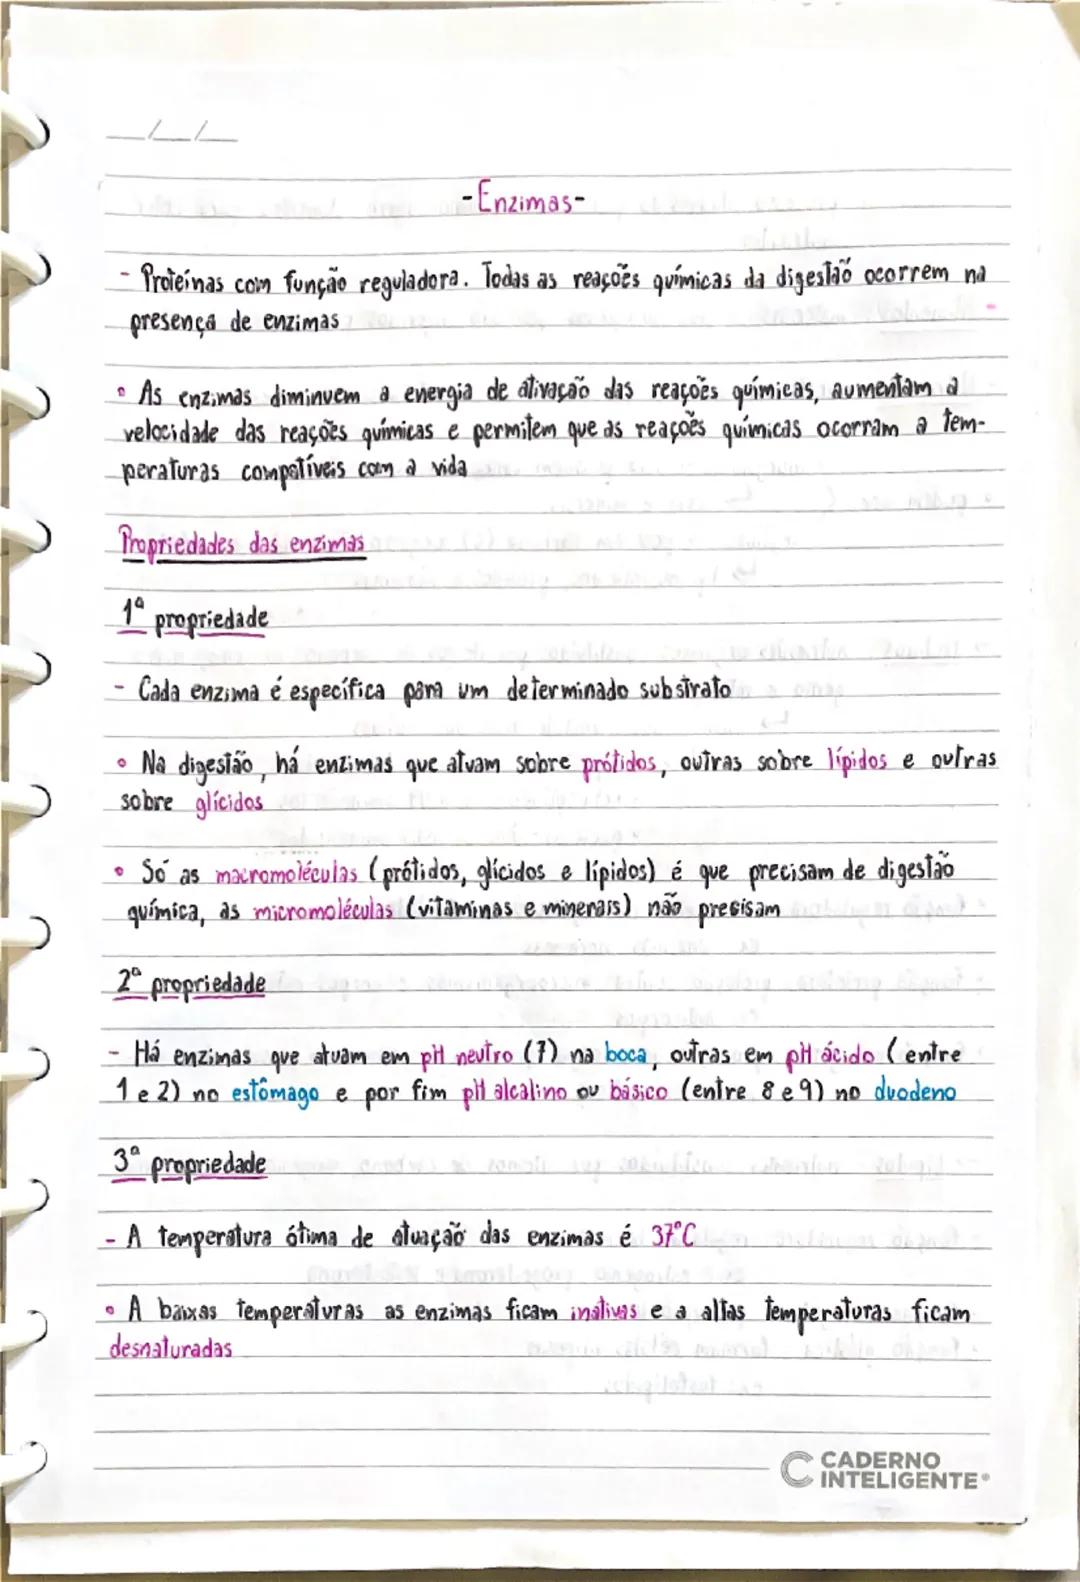 __/__/__
-Enzimas-
- Proteínas com função reguladora. Todas as reações químicas da digestão ocorrem na
presença de enzimas
• As enzimas diminuem a energia de ativação das reações químicas, aumentam a
velocidade das reações químicas e permitem que as reações químicas ocorram a tem-
peraturas compatíveis com a vida
Propriedades das enzimas
1ª propriedade
- Cada enzima é específica para um determinado substrato
• Na digestão, há enzimas que atuam sobre prótidos, outras sobre lípidos e outras
sobre glícidos
• Só as macromoléculas (prótidos, glícidos e lípidos) é que precisam de digestão
química, as micromoléculas (vitaminas e minerais) não precisam
2ª propriedade
- Há enzimas que atuam em pH neutro (7) na boca, outras em pH ácido (entre
1 e 2) no estômago e por fim pH alcalino ou básico (entre 8 e 9) no duodeno
3ª propriedade
- A temperatura ótima de atuação das enzimas é 37°C
• A baixas temperaturas as enzimas ficam inativas e a altas temperaturas ficam
desnaturadas
CADERNO
INTELIGENTE®